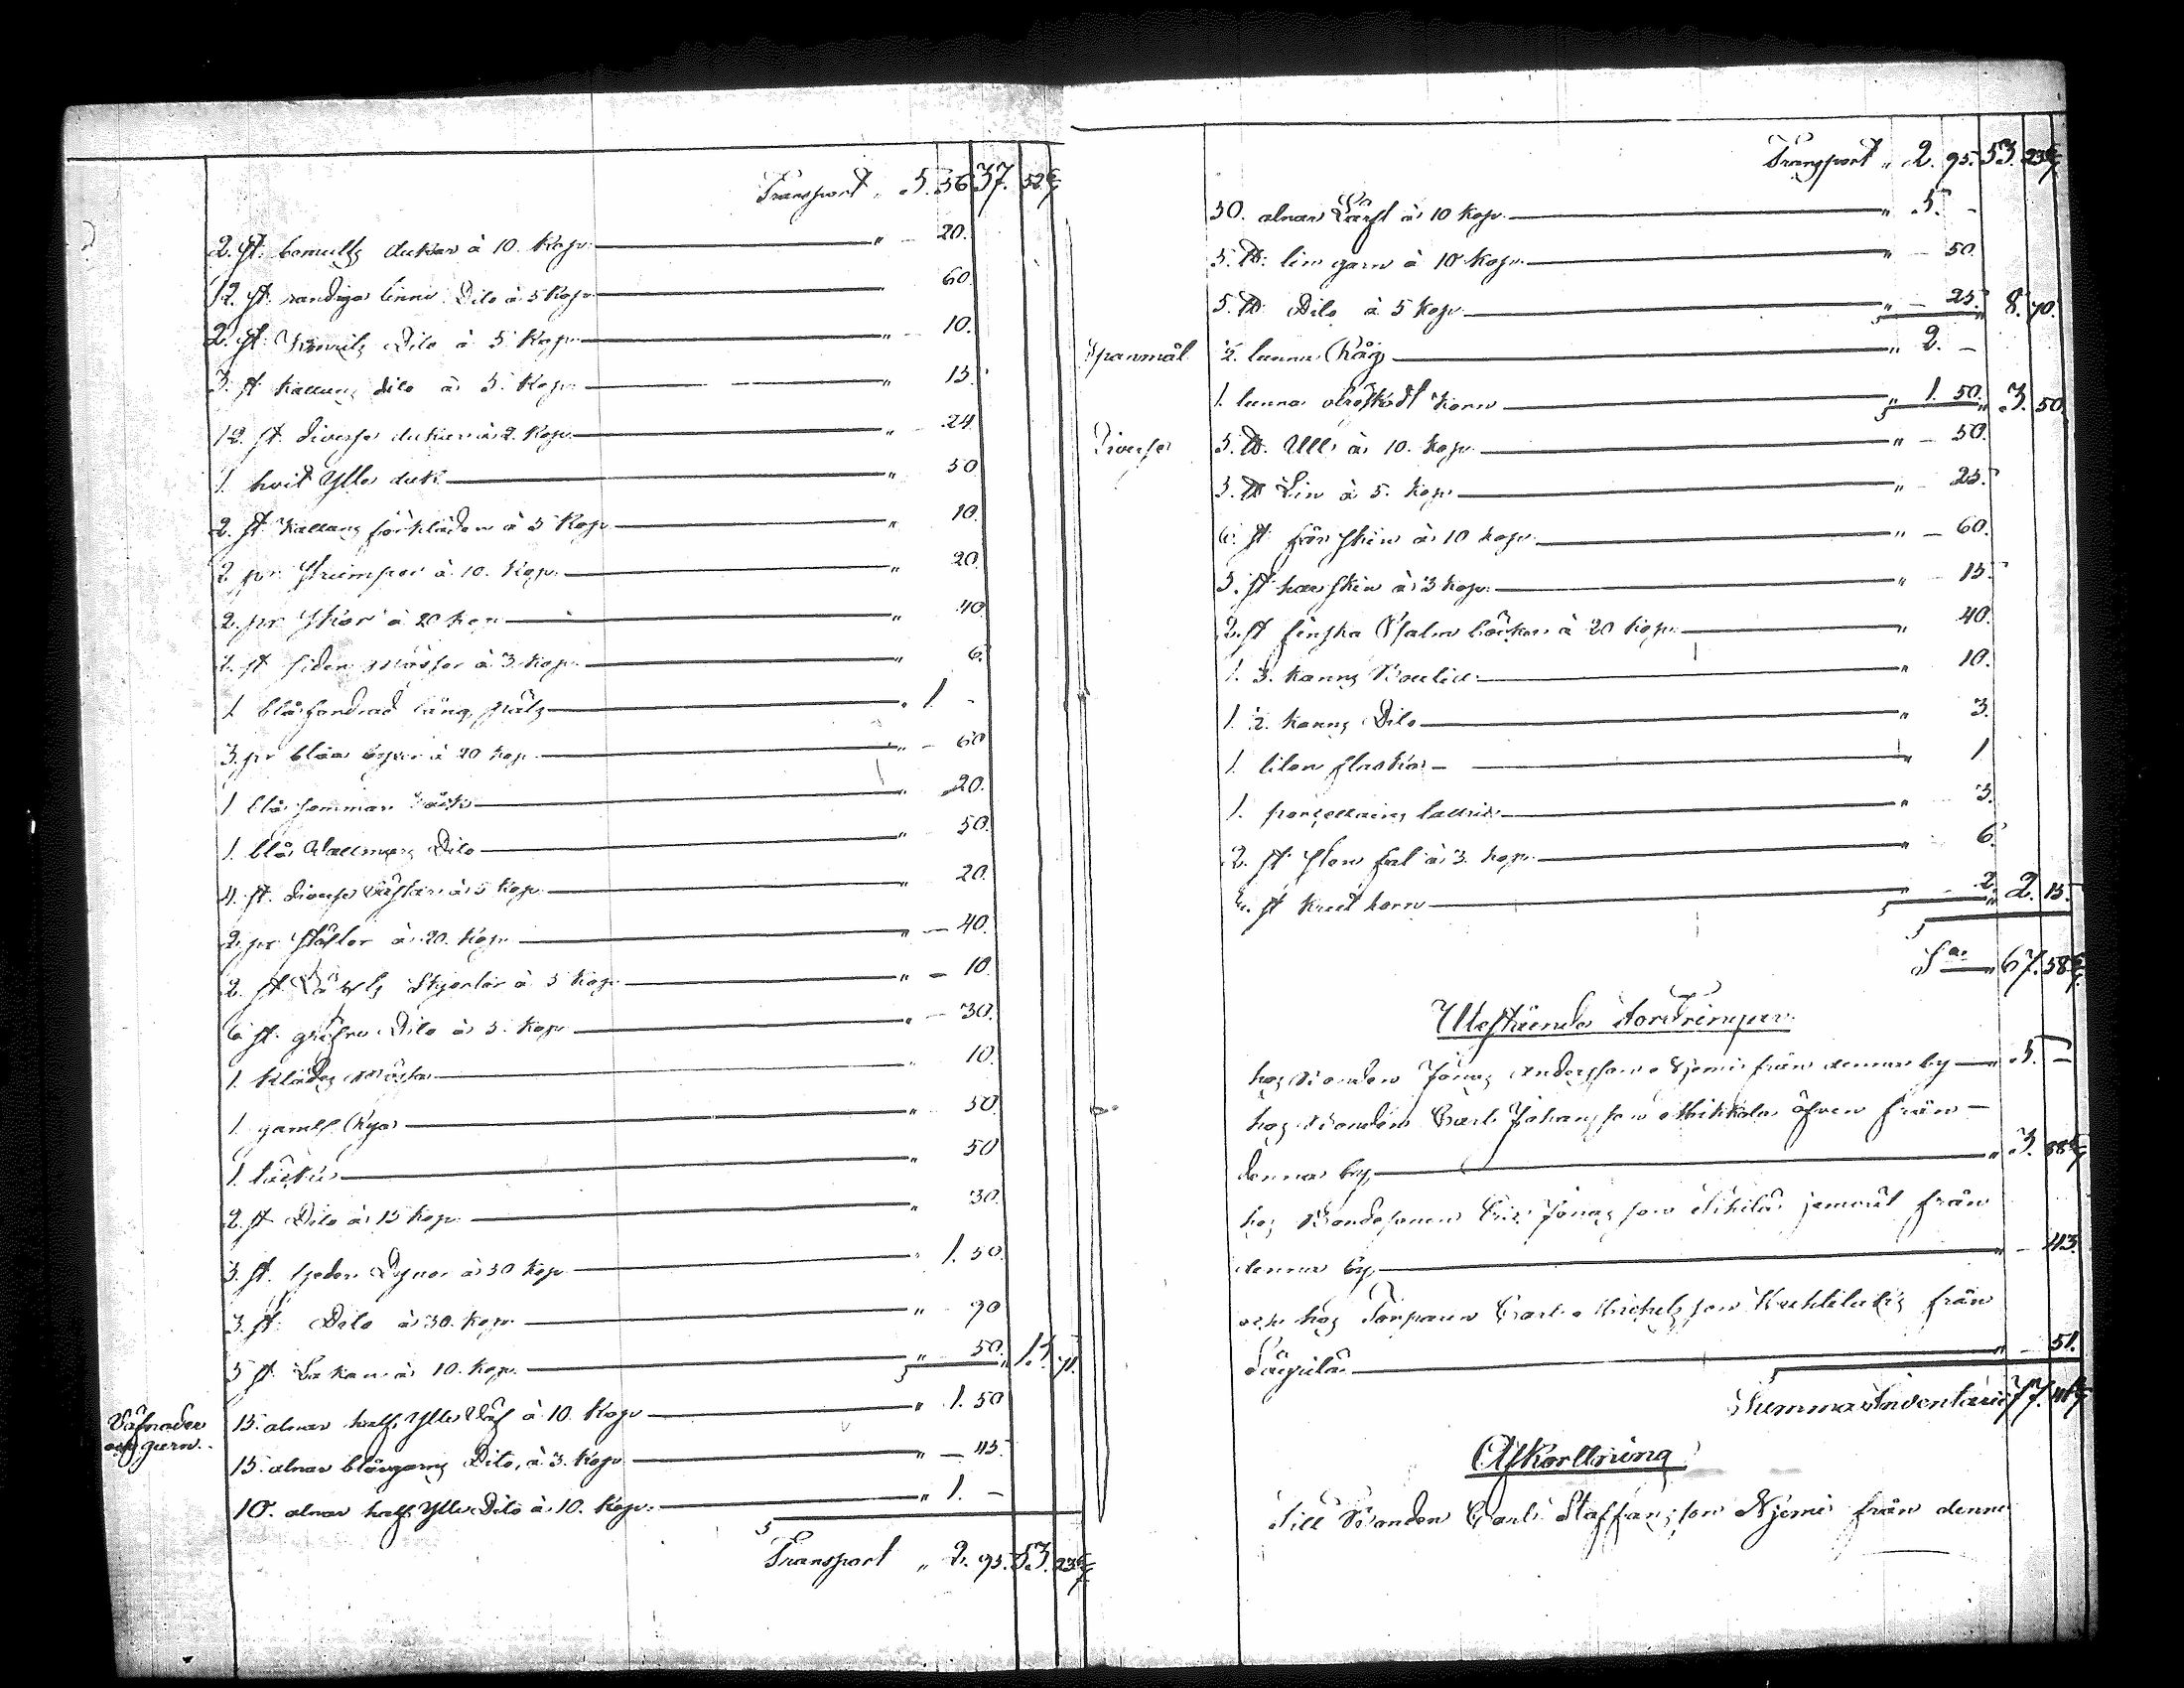 Transport " 5. 36 37. 52 4/7
2. st. bomulls dukar à 10. Kop. " — 20.
12. st. randiga linne Dito à 5 Kop. 60.
2. st. Dito à 5 Kop. " — 10.
3. st. Kattuns dito à 5. Kop. " 15.
12. st. diverse dukar à 2. Kop. " — 24.
1. hvit Ylle duk " 50
2. st. Kattuns förkläden à 5 Kop. " 10.
2 pr. strumpor à 10. Kop. " 20.
2. pr. skor à 20 kop. " 40
2. st. siden mössor à 3. kop. " 6.
1. blå fondrad lång päls " 1. -
3. pr blåa byxor à 20 kop. " — 60
1 blå sommar " 20.
1. blå Wallmars Dito " 50.
4. st. diverse Västar à 5 Kop. " 20.
2. pr. stöflor à 20. Kop. " — 40.
2. st. Skjortor à 5 Kop. " — 10
6. st. gröfre Dito à 5. Kop. " — 30.
1. klädes mössa " 10.
1. gamel Rya " 50.
1. täcke " 50
2. st. Dito à 15 Kop. " 30.
3. st. fjeder Dynor à 50 Kop. " 1. 50.
3. st. Dito à 30. kop. " 90
5 st. Lakan à 10. Kop. " 50.
Väfnader
och garn.
15. alnar half Ylle Väf à 10. Kop. " 1. 50
15. alnar blångarns Dito, à 3. Kop. " — 45.
10. alnar half Ylle Dito à 10. Kop. " 1. —
Transport " 2. 95. 53. 23 4/7
Transport " 2. 95. 53. 23 4/7
50. alnar Lärft à 10 Kop. " 5. -
5. ℔. lin garn à 10 Kop. " — 50.
5. ℔. Dito à 5 Kop. " — 25. 8. 70.
Spanmål ½. tunna Råg " 2. —
1. tunna otröskadt korn " 1. 50. 3. 50.
Diverse 5. ℔. Ull à 10. Kop. " — 50.
5. ℔ Lin à 5. Kop. " — 25.
6. st. får skin à 10 kop. " — 60.
5. st. har skin à 3 kop. " 15.
2. st finska Psalm böcker à 20 Kop. " 40.
1. 3. kanns Boutell " 10.
1. ½. kanns Dito " 3.
1. liten flaska " 1
1. porcellains tallrik " 3.
2. st. sten fat à 3. kop. " 6.
2. st krut horn " — 2. 2. 15.
S:a " 67. 58 4/7
Utestående fordringar.
hos Bonden Jonas Andersson Njemi från denna by " 5. —
hos Bonden Carl Johansson Mikkola äfven från —
denna by " 3. 88 4/7
hos Bondesonen Eric Jonasson jemväl från
denna by " — 43.
och hos Torparen Carl Michelsson från
" — 51.
Summa Inventarii 77. 41 1/7
Afkortning
Till Bonden Carl Staffansson Njemi från denna